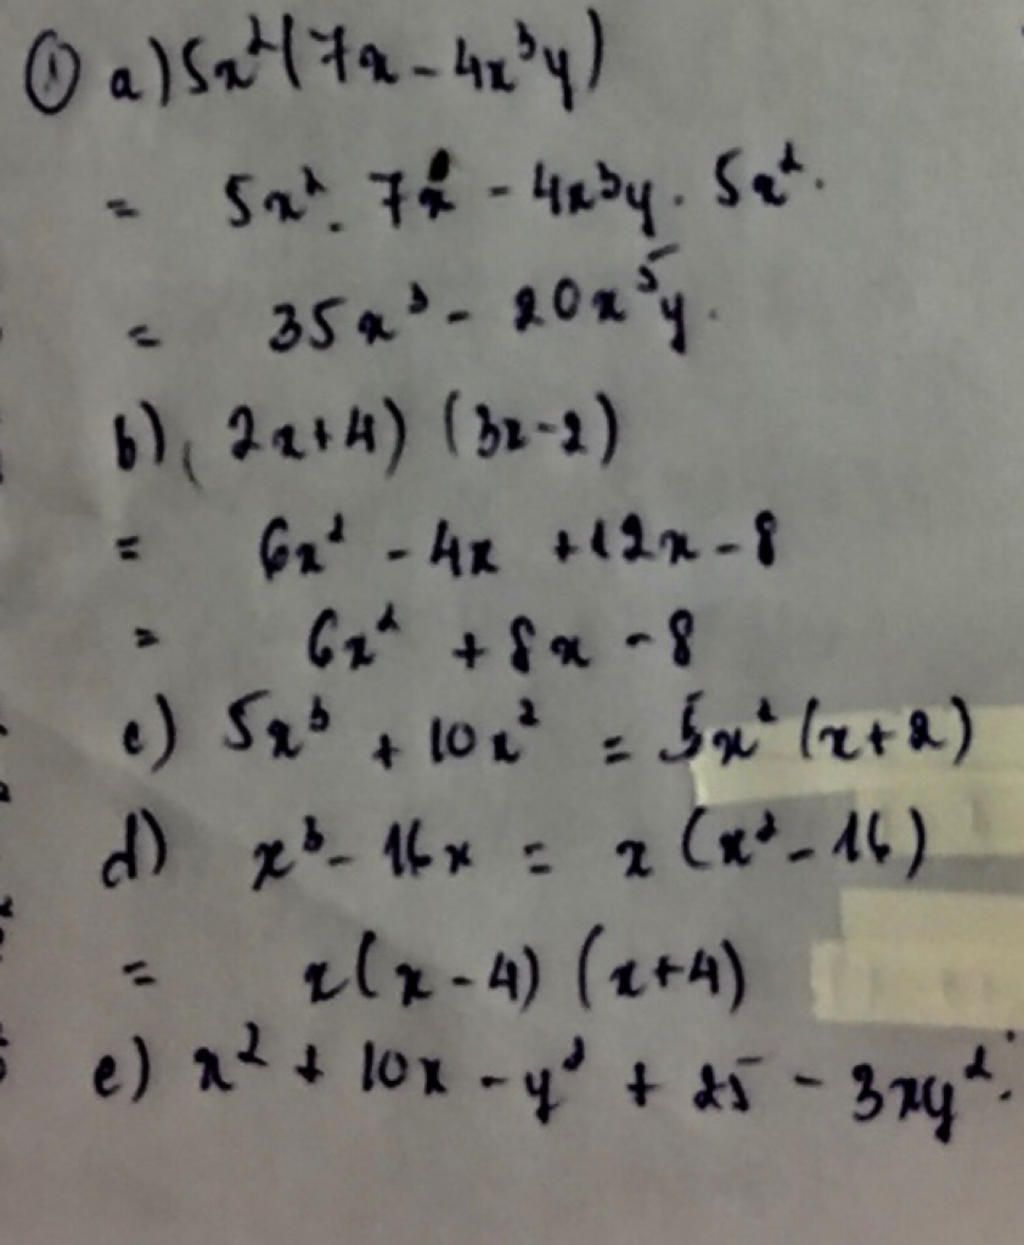 ① a) 5x²(7x - 4x³y)
= 5x². 7x - 4x³y. 5x².
= 35x³ - 20x⁵y.
b) (2x+4) (3x-2)
= 6x² - 4x +12x - 8
= 6x² + 8x - 8
c) 5x³ + 10x² = 5x² (x+2)
d) x³ - 16x = x (x² - 16)
= x(x-4) (x+4)
e) x² + 10x - y² + 25 - 3xy².